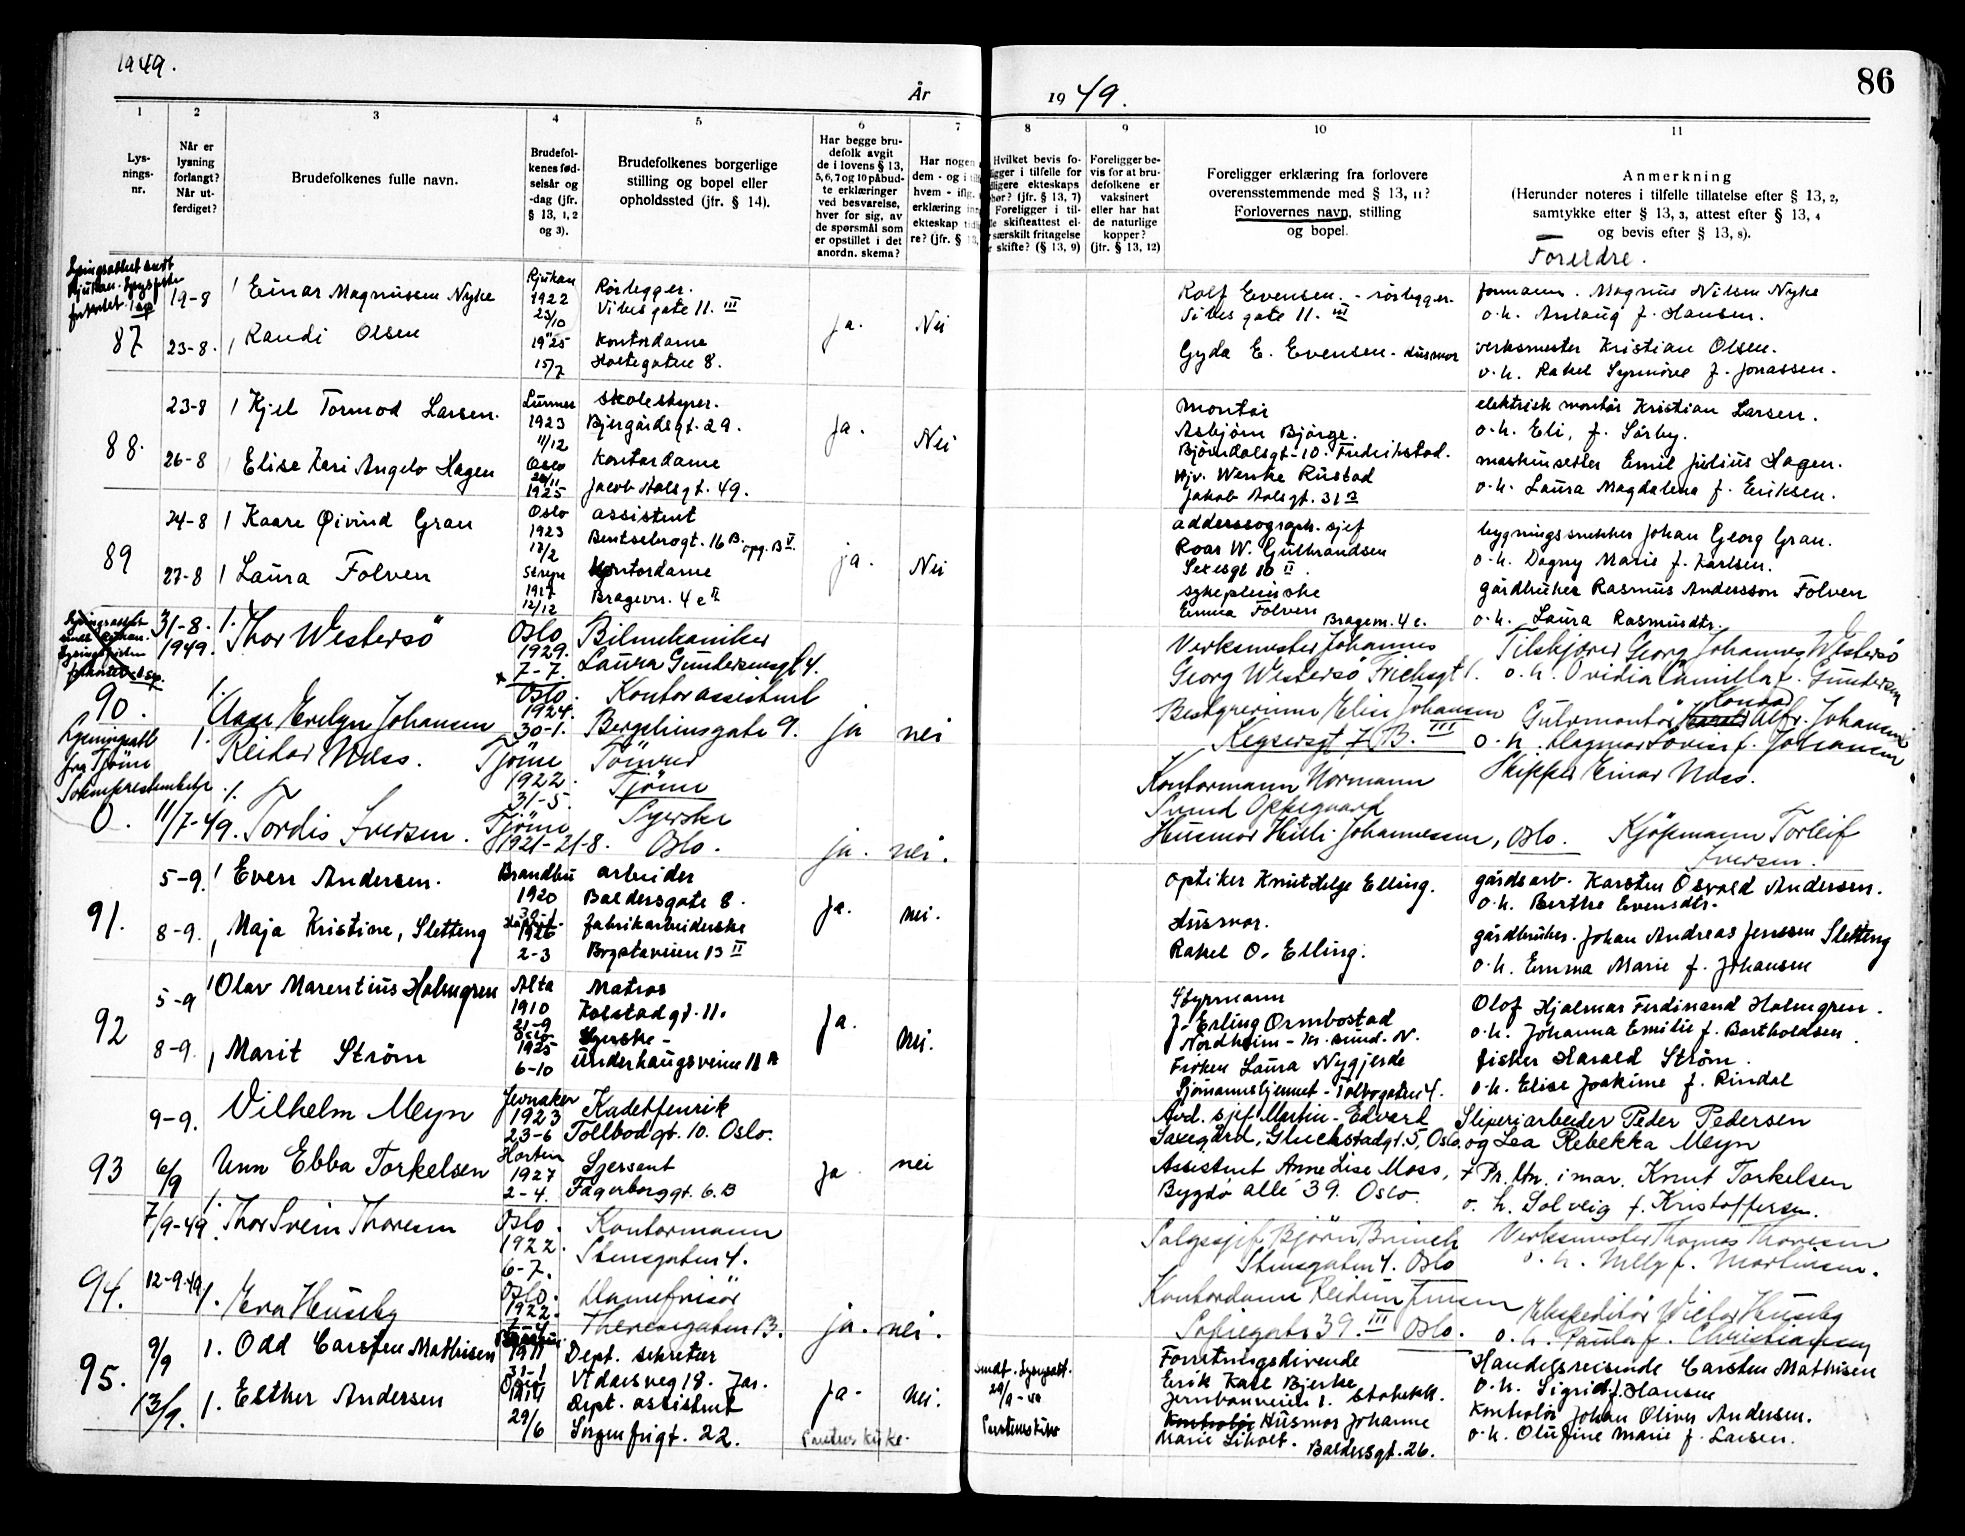 1949.
År
1949.
86
1
Lys-
nings-
nr.
2
Når er
lysning
forlangt?
Når ut-
ferdiget?
3
Brudefolkenes fulle navn.
4
Brudefol-
kenes fød-
selsår og
-dag (jfr.
§ 13, 1, 2
og 3).
5
Brudefolkenes borgerlige
stilling og bopel eller
opholdssted (jfr. § 14).
6
Har begge bru-
defolk avgit
de i lovens § 13,
5, 6, 7 og 10 påbud-
te erklæringer
ved besvarelse,
hver for sig, av
de spørsmål som
er opstillet i det
anordn. skema?
7
Har nogen
dem - og i
hvem - iflg.
erklæring in
ekteskap
re? (jfr. § 13,
8
Hvilket bevis fo-
igger i tilfelle for
dligere ekteskaps
hør? (jfr. § 13, 7)
Foreligger i til-
le skifteattest el-
særskilt fritagelse
skifte? (§ 13, 9)
9
Foreligger be-
vis for at bru-
defolkene er
vaksinert
eller har hat
de naturlige
kopper?
(jfr. § 13, 12)
10
Foreligger erklæring fra forlovere
overensstemmende med § 13, 11?
Forlovernes navn, stilling
og bopel.
11
Anmerkning
(Herunder noteres i tilfelle tillatelse efter § 13, 2,
samtykke efter § 13, 3, attest efter § 13, 4
og bevis efter § 13, 8).
Foreldre.
87
19-8
23-8.
1 Einar Magnussen Nyke
1 Randi Olsen
Rjukan
1922
23/10
1925
15/7
Rørlegger.
Vibes gate 11. III
Kontordame
Holtegaten 8.
Ja.
Nei
Rolf Evensen. - rørlegger.
Vibes gate 11. III
Gyda E. Evensen - Husmor
formann. Magnus Nilsen Nyke
o.h. Anlaug f. Hansen.
verksmester Kristian Olsen.
o.h. Rakel f. Jonassen.
88.
23-8
26-8
1 Kjel Tormod Larsen.
1 Elise Kari Angelo Hagen
Lunner
1923
11/12
Oslo
20/11
1925
skolestyrer.
Bjergårdsgt. 29.
Kontordame
Jacob Aalsgt. 49.
Ja.
Nei
Montør
Asbjørn Bjørge.
Bjørndalsgt-10. Fredrikstad.
Hjv. Wenke Rustad
Jakob Aalsgt. 31 B
elektrisk montør Kristian Larsen.
o.h. Eli, f. Sørby.
maskinsetter Emil Julius Hagen.
o.h. Laura Magdalena f. Eriksen.
89
24-8
27-8
1 Kaare Øivind Gran
1 Laura Folven
Oslo
1923
17/2
Stryn
1917
12/12
assistent
Bentsebrogt. 16 B. opg. B V.
Kontordame
Bragevn. 4 c II
ja.
Nei
adressograph. sjef
Roar W. Gulbrandsen
Sexesgt 10 II.
sykepleierske
Emma Folven Bragevn. 4 c.
bygningssnekker Johan Georg Gran.
o.h. Dagny Marie f. Karlsen.
gårdbruker Rasmus Andersson Folven
o.h. Laura Rasmusdtr.
90.
31-8.
1949.
1. Thor Westersö
1. Aase Evelyn Johansen
Oslo
1929.
7-7.
Oslo.
1924.
30-1.
Bilmekaniker
Laura Gundersensgt 4.
Kontorassistent
Bergslinsgate 9.
ja
nei
Verksmester Johannes
Georg Westersö Frichsgt 1.
Bestyrerinne Elise Johansen
Keysersgt 7 B. III
Tilskjærer Georg Johannes Westersö
o.h. Ovidia Camilla f. Gundersen
Gulvmontør Konrad Alfr. Johansen
o.h. Dagmar Lovise f. Johansen
Lysningsatt.
fra Tjöme
Sokneprestembete.
0.
11/7-49.
1. Reidar Næss.
1. Tordis Iversen.
Tjöme
1922.
31-5.
Tjöme
1921-21-8.
Tömrer
Tjöme
Syerske
Oslo.
ja.
nei.
Kontormann Normann
Svend Oppegaard
Husmor Hilli Johannessen, Oslo.
Skipper Einar Næss.
Kjöpmann Torleif
Iversen.
91.
5-9.
8-9.
1 Even Andersen.
1 Maja Kristine, Sletteng
Brandbu
1920
1926
2-3
arbeider
Baldersgate 8.
fabrikarbeiderske
Bygdøveien 13 II
Ja.
nei.
Optiker Knut Helge Elling.
Husmor.
Rakel O. Elling.
gårdsarb. Karsten Osvald Andersen.
o.h. Berthe Evensdtr.
gårdbruker. Johan Andreas Jenssen Sletteng
o.h. Emma Marie f. Johansen
92
5-9
8-9.
1 Olav Marentius Holmgren
1 Marit Strøm
Alta
1910
21-9
Oslo
1925
6-10
Matros
Kolstadgt. 11.
Syerske-
Underhaugsveien 11 A
Ja.
Nei.
Styrmann
J. Erling Ormbostad
Nordheim - Kr.sund. N.
Frøken Laura Nygjerde
Sjømannshjemmet - Tolbogaten 4.
Olof Hjalmar Ferdinand Holmgren.
o.h. Johanna Emilie f. Bertholdsen.
fisker Harald Strøm.
o.h. Elise Joakime f. Rindal
93
9-9.
6/9
Vilhelm Meyn
Unn Ebba Torkelsen
Jevnaker
1923
23-6
Horten
1927
2-4.
Kadettfenrik
Tollbodgt. 10. Oslo.
Sersjant
Fagerborggt. 6. B
ja.
nei
Avd. sjef Martin-Edvard
Saxegård, Gluckstadgt. 5, Oslo
Assistent Anne Lise Moss,
Bygdø allé 39. Oslo.
Sliperiarbeider Peder Pedersen
og Lea Rebekka Meyn
f Pr. ltn. i mar. Knut Torkelsen
o. h. Solveig f. Kristoffersen.
94.
7/9-49.
12-9.49
1. Thor Svein Thoresen
1. Eva Huseby
Oslo.
1922.
6-7.
Oslo.
1922.
7-4
Kontormann
Stensgaten 4.
Damefrisör
Theresesgaten 13.
ja.
nei.
Salgssjef Bjørn Brinch
Stensgaten 4. Oslo
Kontordame Reidun Jensen
Sofiegate 39. III Oslo.
Verksmester Thomas Thoresen
o. h. Nelly f. Martinsen.
Ekspeditör Victor Huseby
o. h. Paula f. Christiansen
95.
9/9
13/9.
1. Odd Carsten Mathisen
1. Esther Andersen
1911
29/6
Dept. sekretær
Vidarsveg 18. Jar.
Dept. assistent
Sorgenfrigt. 22.
Ja.
nei.
Paulus kirke.
Forretningsdrivende
Erik Kåre Bjerke
Jernbaneveien 1. Stabekk.
Husmor Johanne
Marie Liholt. Baldersgt. 26.
Handelsreisende Carsten Mathisen
o.h. Sigrid f. Hansen
Kontrolør Johan Oliver Andersen.
o.h. Olufine Marie f. Larsen.